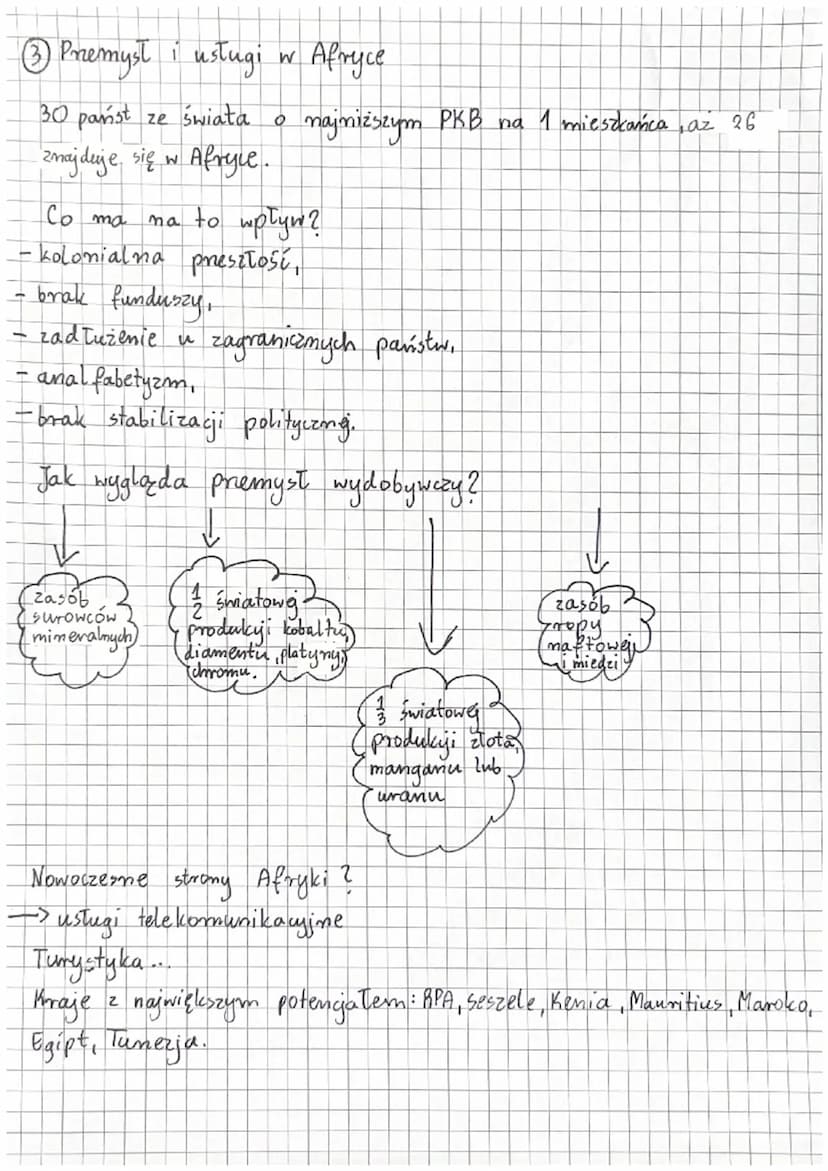 3 Przemysł i usługi w Afryce
30 państ ze świata o najniższym PKB na 1 mieszkańca, aż 26
znajduje się w Afryce.
Co ma na to wpływ?
- kolonialna przeszłość,
- brak funduszy,
- zadłużenie u zagranicznych państw,
- analfabetyzm,
- brak stabilizacji politycznej.
Jak wygląda przemysł wydobywczy?
zasób
surowców
mineralnych
1/2 światowej
produkcji kobaltu,
diamentu, platyny,
chromu.
1/3 światowej
produkcji złota,
manganu lub
uranu
zasób
ropy
naftowej
i miedzi
Nowoczesne strony Afryki?
→ usługi telekomunikacyjne
Turystyka...
Kraje z największym potencjałem: RPA, Seszele, Kenia, Mauritius, Maroko,
Egipt, Tunezja.